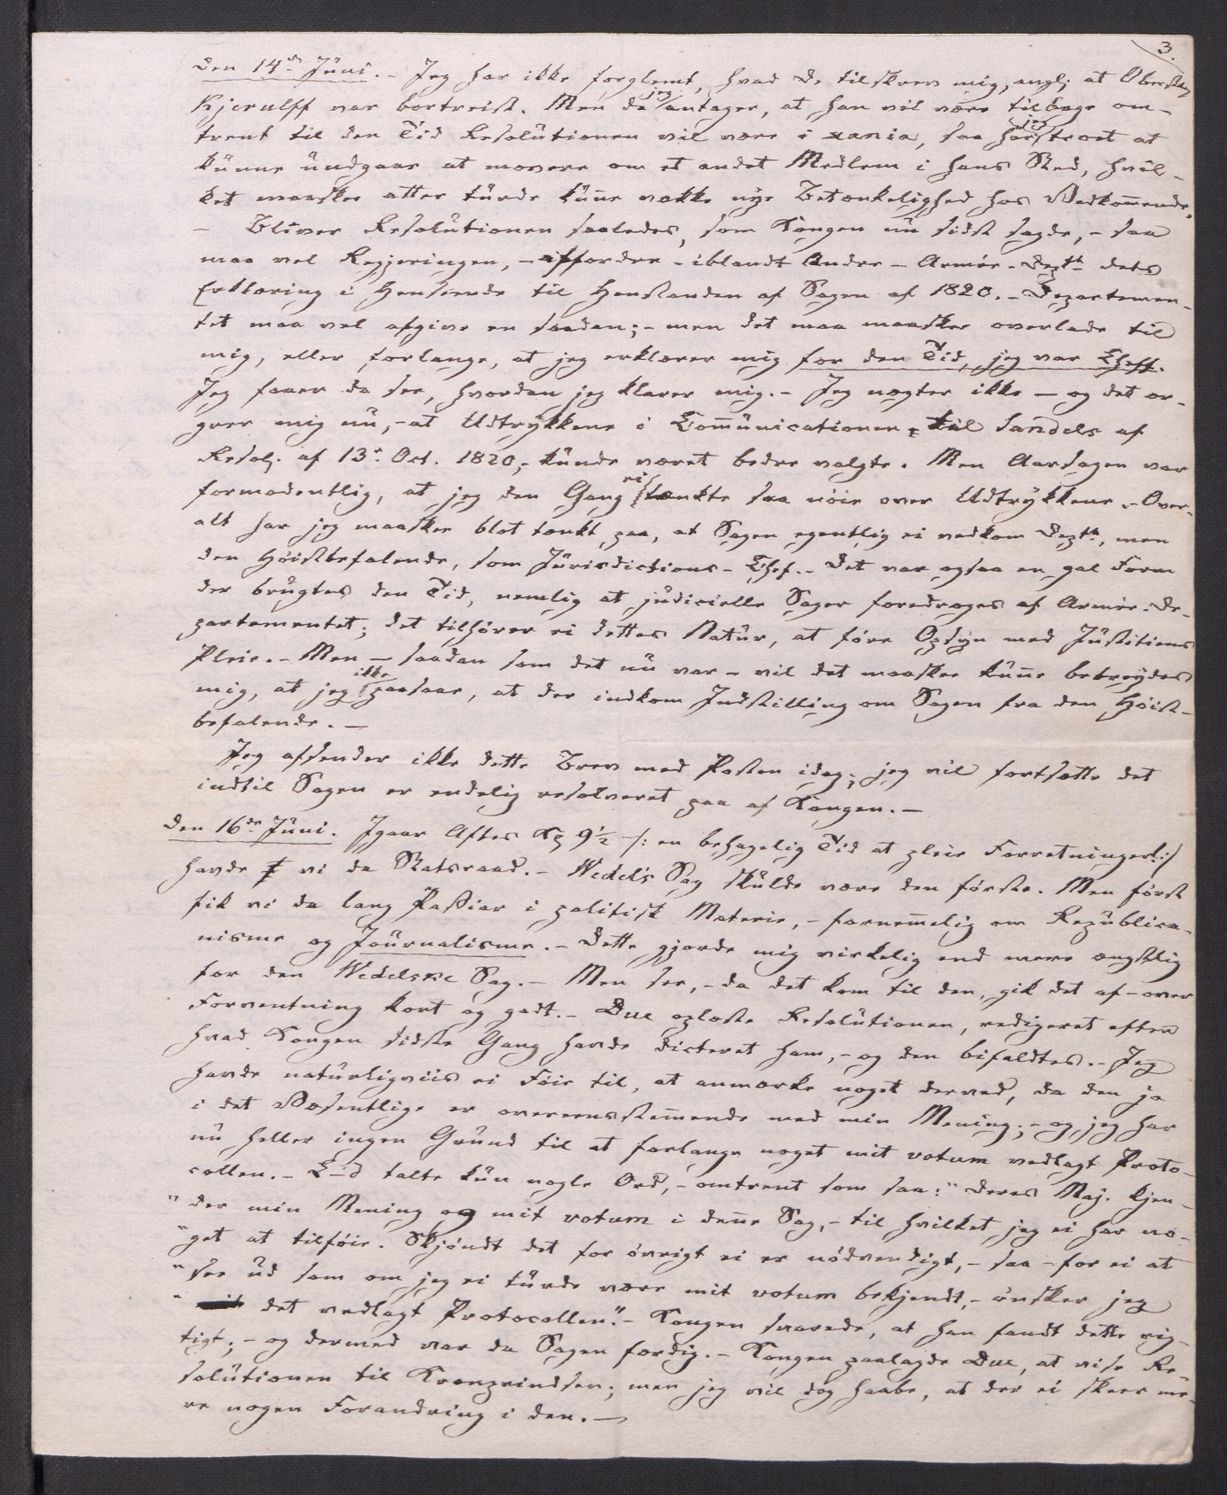 3.
Den 14de Juni. - Jeg har ikke forglemt, hvad De tilskrev mig, angl; at Obersten
Kjerulff var bortreist. Men da jeg antager, at han vil være tilbage om-
trent til den Tid Resolutionen vil være i xania, saa har jeg troet at
kunne undgaae at movere om et andet Medlem i hans Sted, hvil-
ket maaskee atter turde kune vække nye Betænkelighed hos Vedkomende.
- Bliver Resolutionen saaledes, som Kongen nu sidst sagde, - saa
maa vel Regjeringen, - affordre - iblandt Andre - Armée-Dept. dets
Erklæring i Henseende til Henstanden af Sagen af 1820. - Departemen-
tet maa vel afgive en saadan; - men det maa maaskee overlade til
mig, eller forlange, at jeg erklærer mig for den Tid, jeg var Cheff.
Jeg faaer da see, hvordan jeg klarer mig. - Jeg nægter ikke - og det ær-
grer mig nu, - at Udtrykkene i Comunicationen til Sandels af
Resol; af 13de Oct. 1820, - kunde været bedre valgte. Men Aarsagen var
formodentlig, at jeg den Gang ei tænkte saa nöie over Udtrykkene. - Over-
alt har jeg maaskee blot tænkt paa, at Sagen egentlig ei vedkom Dept., men
den Höistbefalende, som Jurisdictions-Chef. - Det var ogsaa en gal Form
der brugtes den Tid, nemlig at judicielle Sager foredroges af Armée-De-
partementet; det tilhörer ei dettes Natur, at före Opsyn med Justitiens
Pleie. - Men - saadan som det nu var - vil det maaskee kune betrydes
mig, at jeg ikke paasaae, at der indkom Indstilling om Sagen fra den Höist-
befalende. -
Jeg afsender ikke dette Brev med Posten idag; jeg vil fortsætte det
indtil Sagen er endelig resolveret paa af Kongen. -
Den 16de Juni. Igaar Aftes Kl 9½ /: en behagelig Tid at pleie Forretninger :/
havde vi da Statsraad. - Wedels Sag skulde være den förste. Men först
fik vi da lang Passiar i politisk Materie, - fornemelig om Republica-
nisme og Journalisme. - Dette gjorde mig virkelig end mere ængstlig
for den Wedelske Sag. - Men see, - da det kom til den, gik det af - over
Forventning kort og godt. - Due oplæste Resolutionen, redigeret efter
hvad Kongen sidste Gang havde dicteret ham, - og den bifaldtes. - Jeg
havde naturligviis ei Föie til, at anmærke noget derved, da den jo
i det Væsentlige er overeensstemende med min Mening; - og jeg har
nu heller ingen Grund til at forlange noget mit votum vedlagt Proto-
collen. - L-d talte kun nogle Ord, - omtrent som saa: "Deres Maj. kjen-
"der min Mening og mit votum i dene Sag, - til hvilket jeg ei har no-
"get at tilföie. Skjöndt det for övrigt ei er nödvendigt, - saa - for ei at
"see ud som om jeg ei turde være mit votum bekjendt, - önsker jeg
" det vedlagt Protocollen". - Kongen svarede, at han fandt dette rig-
tigt; - og dermed var da Sagen færdig. - Kongen paalagde Due, at vise Re-
solutionen til Kronprindsen; men jeg vil dog haabe, at der ei skeer me-
re nogen Forandring i den. -